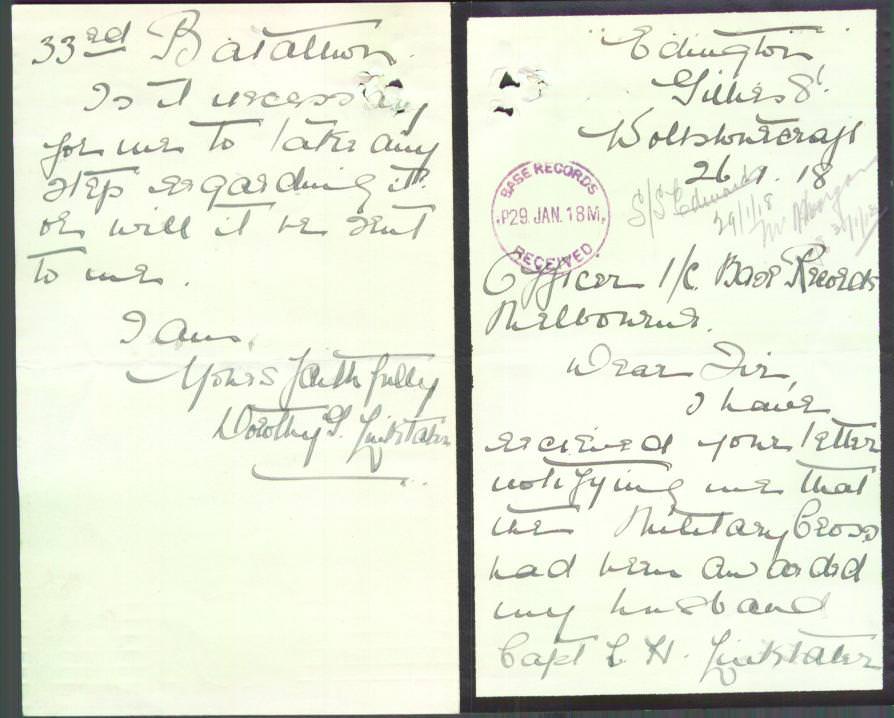 Edington
Gillies St.
Wollstonecraft
26.1.18
BASE RECORDS
P29. JAN. 18M.
RECEIVED
29/1/18
Officer I/C. Base Records
Melbourne.
Dear Sir,
I have
recieved your letter
notifying me that
the Military Cross
had been awarded
my husband
Capt L. H. Linklater
33rd Batallion.
Is it necessary
for me to take any
step regarding it
or will it be sent
to me.
I am.
Yours faithfully
Dorothy G. Linklater